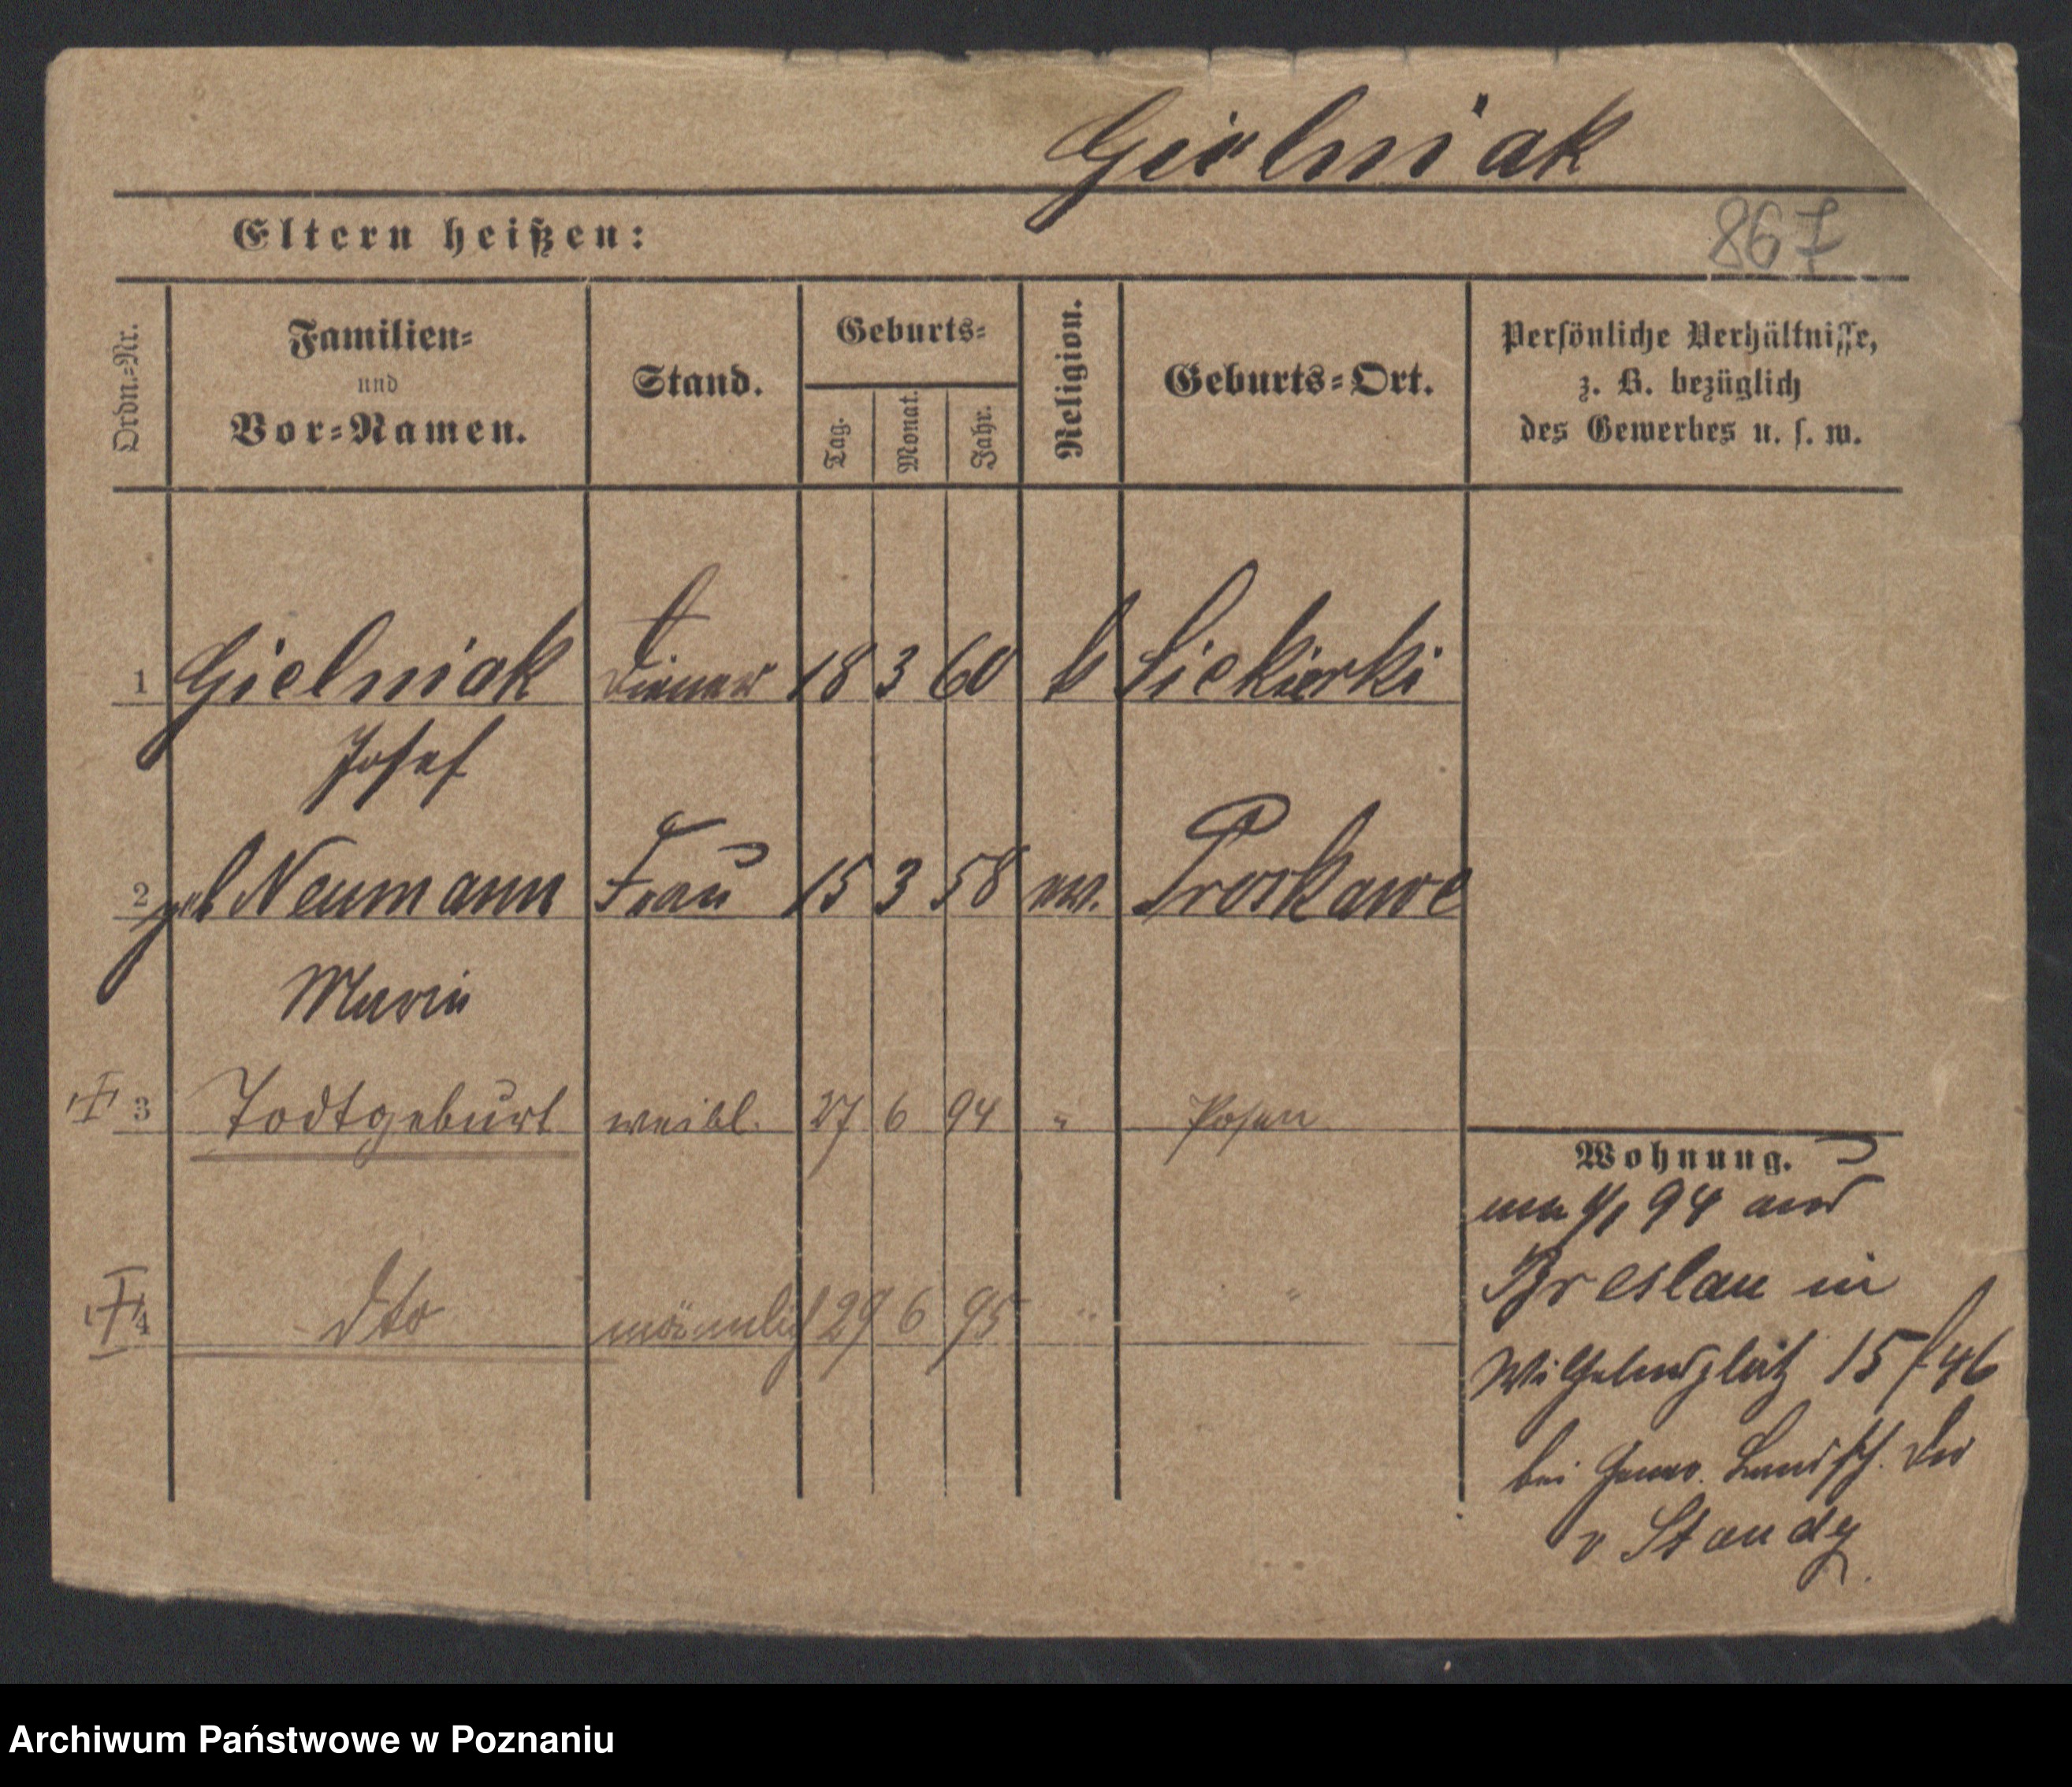 Gielniak
867
Eltern heißen:
Ordn.-Nr.
Familien-
und
Vor-Namen.
Stand.
Geburts-
Tag.
Monat.
Jahr.
Religion.
Geburts-Ort.
Persönliche Verhältnisse,
z. B. bezüglich
des Gewerbes u. s. w.
1 Gielniak Diener 18 3 60 Siekierki
Josef
2 geb Neumann Frau 15 3 58 ev. Proskawe
Maria
3 Todtgeburt weibl. 27 6 94 " Posen
4 dto männlich 29 6 95 " "
Wohnung.
94 aus
Breslau in
Wilhelmsplatz 15 f 46
bei Gener. Landsch. Dir
v Staudy.
Archiwum Państwowe w Poznaniu